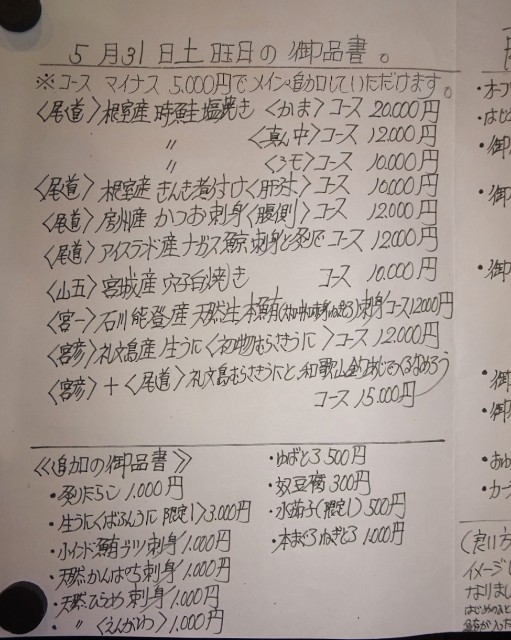 5月31日土旺日の御品書。
※コース マイナス 5.000円でメイン追加していただけます。
〈尾道〉根室産 時鮭塩焼き 〈かま〉コース 20.000円
〃 〈真ん中〉コース 12.000円
〃 コース 10.000円
〈尾道〉根室産 きんき煮付け〈肝付〉コース 10.000円
〈尾道〉房州産 かつお刺身〈腹側〉コース 12.000円
〈尾道〉アイスランド産ナガス鯨刺身と炙りで コース 12.000円
〈山五〉宮城産 穴子白焼き コース 10.000円
〈宮一〉石川能登産 天然生本鮪 刺身 コース12000円
〈宮彦〉礼文島産 生うに〈初物むらさきうに〉コース 12.000円
〈宮彦〉+〈尾道〉礼文島むらさきうにと、和歌山釣あじ なめろう
コース 15.000円
《追加の御品書》
・炙りたらこ 1.000円
・生うに〈ばふんうに 限定1〉3.000円
・インド鮪ブツ刺身 1.000円
・天然かんぱち刺身 1.000円
・天然ひらめ刺身 1.000円
・〃〈えんがわ〉 1.000円
・ゆばとろ 500円
・奴豆腐 300円
・水茄子(限定1) 500円
・本まぐろねぎとろ 1.000円
・はじ
・御
・御
・御
・御
・御
(良い方
イメージし
なりまし